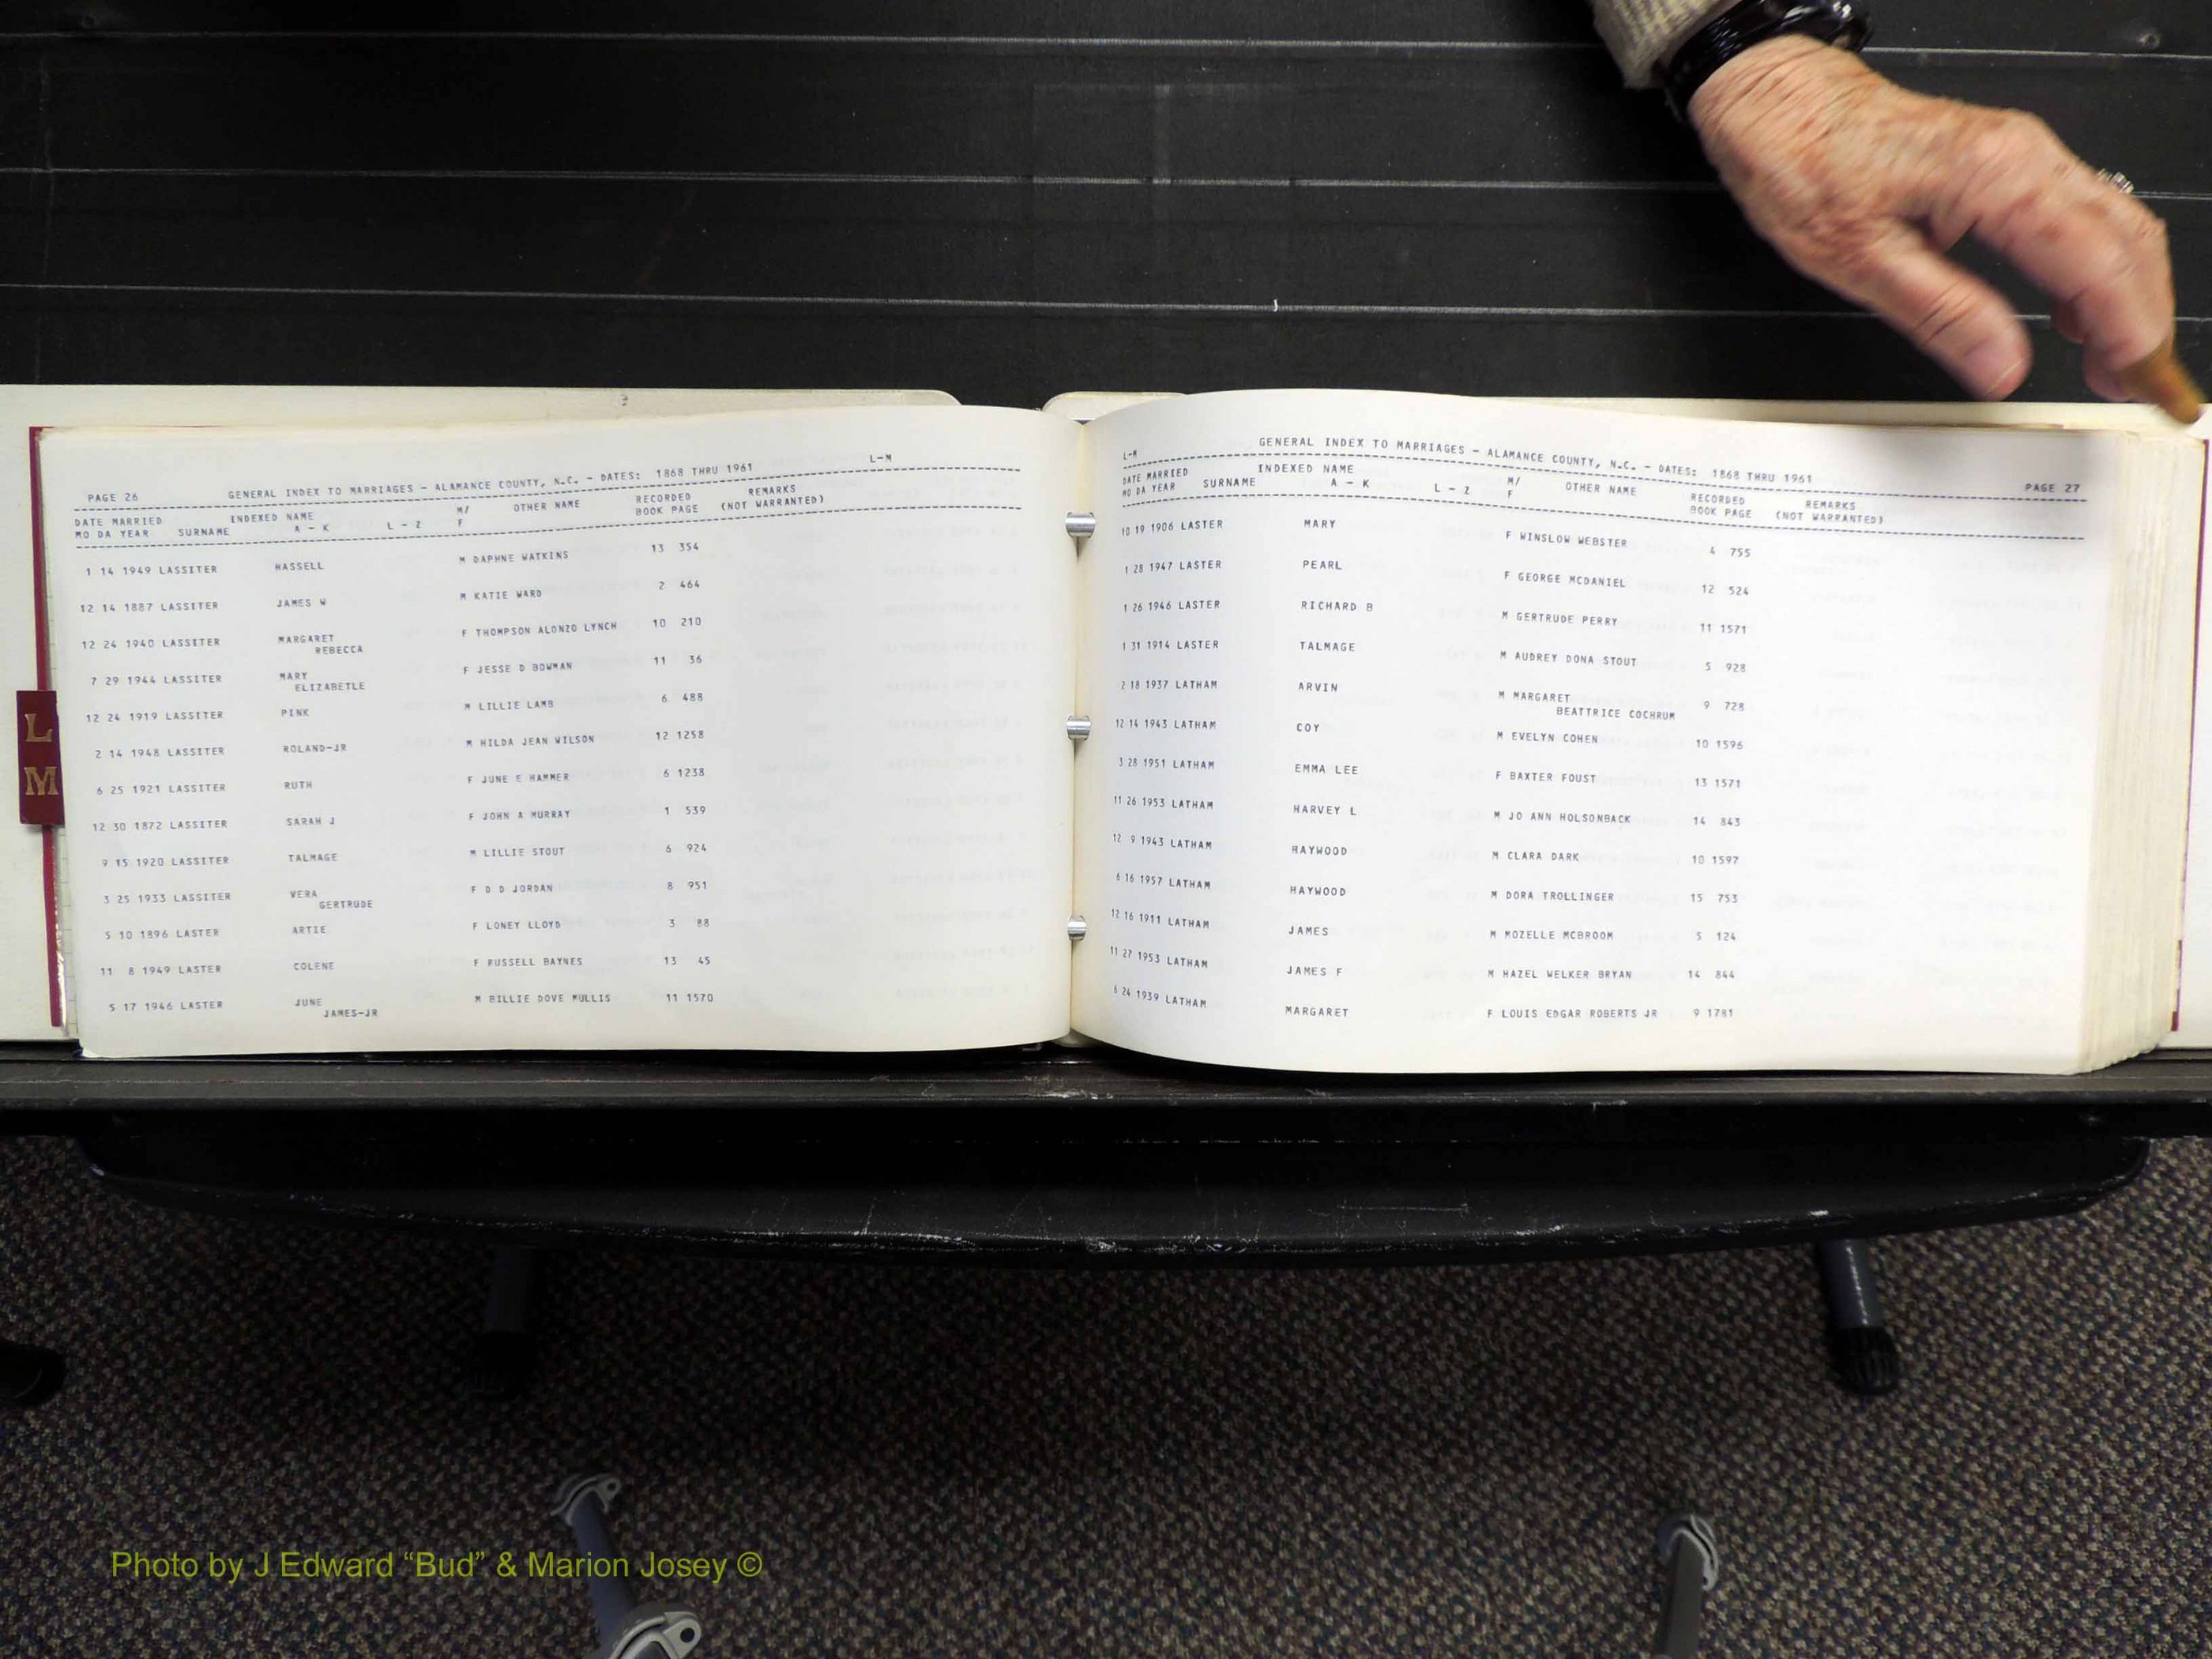 L
M
PAGE 26 GENERAL INDEX TO MARRIAGES - ALAMANCE COUNTY, N.C. - DATES: 1868 THRU 1961 L-M
DATE MARRIED INDEXED NAME M/ OTHER NAME RECORDED REMARKS
MO DA YEAR SURNAME A - K L - Z F BOOK PAGE (NOT WARRANTED)
1 14 1949 LASSITER HASSELL M DAPHNE WATKINS 13 354
12 14 1887 LASSITER JAMES W M KATIE WARD 2 464
12 24 1940 LASSITER MARGARET F THOMPSON ALONZO LYNCH 10 210
REBECCA
7 29 1944 LASSITER MARY F JESSE D BOWMAN 11 36
ELIZABETLE
12 24 1919 LASSITER PINK M LILLIE LAMB 6 488
2 14 1948 LASSITER ROLAND-JR M HILDA JEAN WILSON 12 1258
6 25 1921 LASSITER RUTH F JUNE E HAMMER 6 1238
12 30 1872 LASSITER SARAH J F JOHN A MURRAY 1 539
9 15 1920 LASSITER TALMAGE M LILLIE STOUT 6 924
3 25 1933 LASSITER VERA F D D JORDAN 8 951
GERTRUDE
5 10 1896 LASTER ARTIE F LONEY LLOYD 3 88
11 8 1949 LASTER COLENE F RUSSELL BAYNES 13 45
5 17 1946 LASTER JUNE M BILLIE DOVE MULLIS 11 1570
JAMES-JR
L-M GENERAL INDEX TO MARRIAGES - ALAMANCE COUNTY, N.C. - DATES: 1868 THRU 1961 PAGE 27
DATE MARRIED INDEXED NAME M/ OTHER NAME RECORDED REMARKS
MO DA YEAR SURNAME A - K L - Z F BOOK PAGE (NOT WARRANTED)
10 19 1906 LASTER MARY F WINSLOW WEBSTER 4 755
1 28 1947 LASTER PEARL F GEORGE MCDANIEL 12 524
1 26 1946 LASTER RICHARD B M GERTRUDE PERRY 11 1571
1 31 1914 LASTER TALMAGE M AUDREY DONA STOUT 5 928
2 18 1937 LATHAM ARVIN M MARGARET 9 728
BEATTRICE COCHRUM
12 14 1943 LATHAM COY M EVELYN COHEN 10 1596
3 28 1951 LATHAM EMMA LEE F BAXTER FOUST 13 1571
11 26 1953 LATHAM HARVEY L M JO ANN HOLSONBACK 14 843
12 9 1943 LATHAM HAYWOOD M CLARA DARK 10 1597
6 16 1957 LATHAM HAYWOOD M DORA TROLLINGER 15 753
12 16 1911 LATHAM JAMES M MOZELLE MCBROOM 5 124
11 27 1953 LATHAM JAMES F M HAZEL WELKER BRYAN 14 844
6 24 1939 LATHAM MARGARET F LOUIS EDGAR ROBERTS JR 9 1781
Photo by J Edward “Bud” & Marion Josey ©